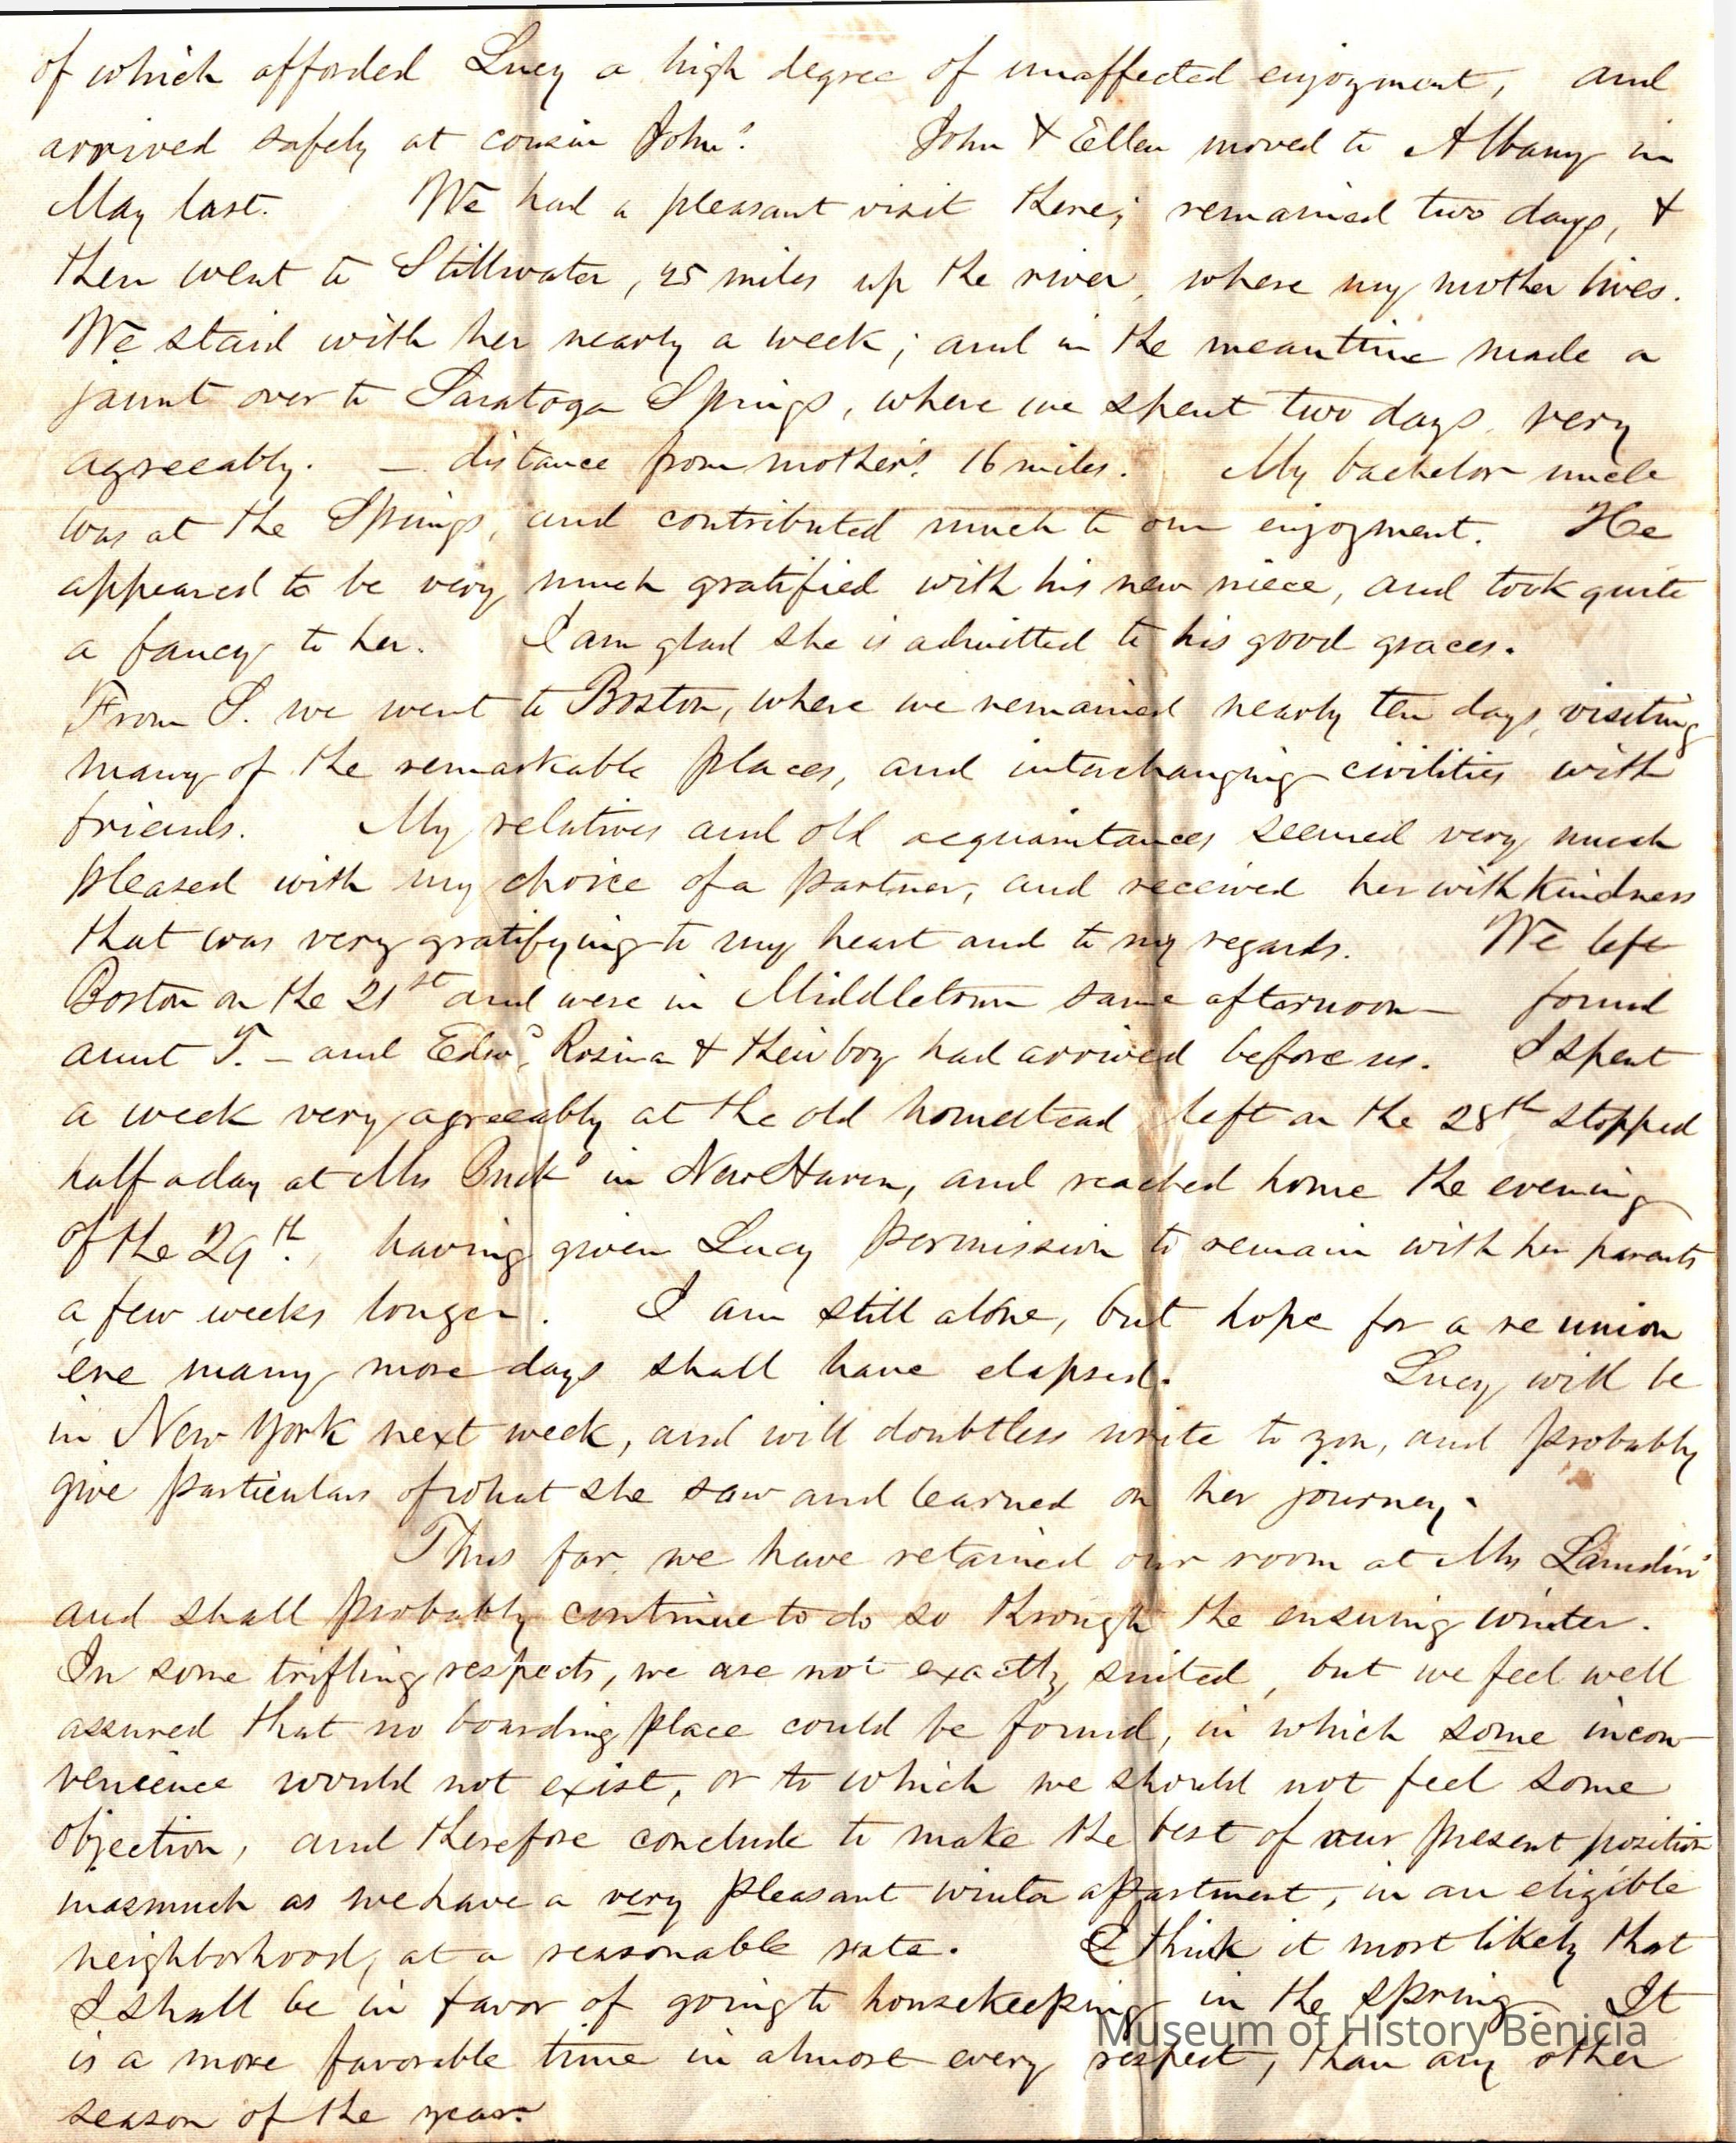 of which afforded Lucy a high degree of unaffected enjoyment, and
arrived safely at cousin John's. John & Ellen moved to Albany in
May last. We had a pleasant visit there; remained two days, &
then went to Stillwater, 25 miles up the river, where my mother lives.
We staid with her nearly a week; and in the meantime made a
jaunt over to Saratoga Springs, where we spent two days very
agreeably. — distance from mother's 16 miles. My bachelor uncle
was at the Springs, and contributed much to our enjoyment. He
appeared to be very much gratified with his new niece, and took quite
a fancy to her. I am glad she is admitted to his good graces.
From S. we went to Boston, where we remained nearly ten days, visiting
many of the remarkable places, and interchanging civilities with
friends. My relatives and old acquaintances seemed very much
pleased with my choice of a partner, and received her with kindness
that was very gratifying to my heart and to my regards. We left
Boston on the 21st and were in Middletown same afternoon — found
aunt T. — and Edwd, Rosina & their boy had arrived before us. I spent
a week very agreeably at the old homestead left on the 28th stopped
half a day at Mrs Buck's in New Haven, and reached home the evening
of the 29th, having given Lucy permission to remain with her parents
a few weeks longer. I am still alone, but hope for a reunion
ere many more days shall have elapsed. Lucy will be
in New York next week, and will doubtless write to you, and probably
give particulars of what she saw and learned on her journey.
Thus far we have retained our room at Mrs
and shall probably continue to do so through the ensuing winter.
In some trifling respects, we are not exactly suited, but we feel well
assured that no boarding place could be found, in which some incon-
venience would not exist, or to which we should not feel some
objection, and therefore conclude to make the best of our present position
inasmuch as we have a very pleasant winter appartment, in an eligible
neighborhood, at a reasonable rate. I think it most likely that
I shall be in favor of going to housekeeping in the spring. It
is a more favorable time in almost every respect, than any other
season of the year.
Museum of History Benicia